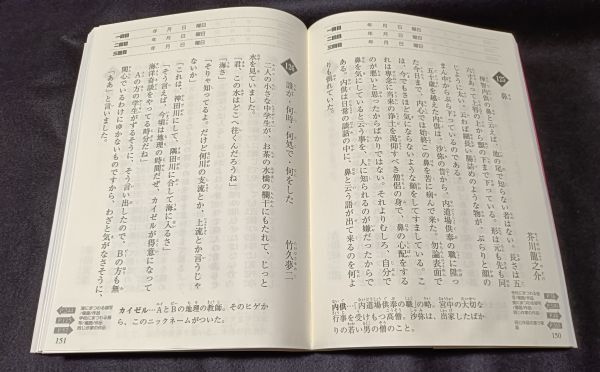 一回目 年 月 日 曜日
二回目 年 月 日 曜日
三回目 年 月 日 曜日
鼻
芥川龍之介
禅智内供の鼻と云えば、池の尾で知らない者はない。長さは五
六寸あって上唇の上から顋の下まで下っている。形は元も先も同
じように太い。云わば細長い腸詰めのような物が、ぶらりと顔の
まん中からぶら下っているのである。
五十歳を越えた内供は、沙弥の昔から、内道場供奉の職に陞っ
た今日まで、内心では始終この鼻を苦に病んで来た。勿論表面で
は、今でもさほど気にならないような顔をしてすましている。こ
れは専念に当来の浄土を渇仰すべき僧侶の身で、鼻の心配をする
のが悪いと思ったからばかりではない。それよりむしろ、自分で
鼻を気にしていると云う事を、人に知られるのが嫌だったからで
ある。内供は日常の談話の中に、鼻と云う語が出て来るのを何よ
りも惧れていた。
内供…「内道場供奉」の略。宮中の大切な
行事を受けもつ高僧。沙弥は、出家したばか
りの若い男の僧のこと。
150
一回目 年 月 日 曜日
二回目 年 月 日 曜日
三回目 年 月 日 曜日
誰が・何時・何処で・何をした
竹久夢二
二人の小さな中学生が、お茶の水橋の欄干にもたれて、じっと
水を見ていました。
「君、この水はどこへ往くんだろうね」
「海さ」
「そりゃ知ってるよ。だけど何川の支流とか、上流とか言うじゃ
ないか」
「これは、神田川にして、隅田川に合して海に入るさ」
「そう言えば、今頃は地理の時間だぜ、カイゼルが得意になって
海洋奇談をやってる時分だね」
Aの方の学生がずるそうに、そう言い出したので、Bの方も無
関心でいるわけにゆかないものですから、わざと気がなさそうに、
「ああ」と言いました。
カイゼル…AとBの地理の教師。そのヒゲか
ら、このニックネームがついた。
151